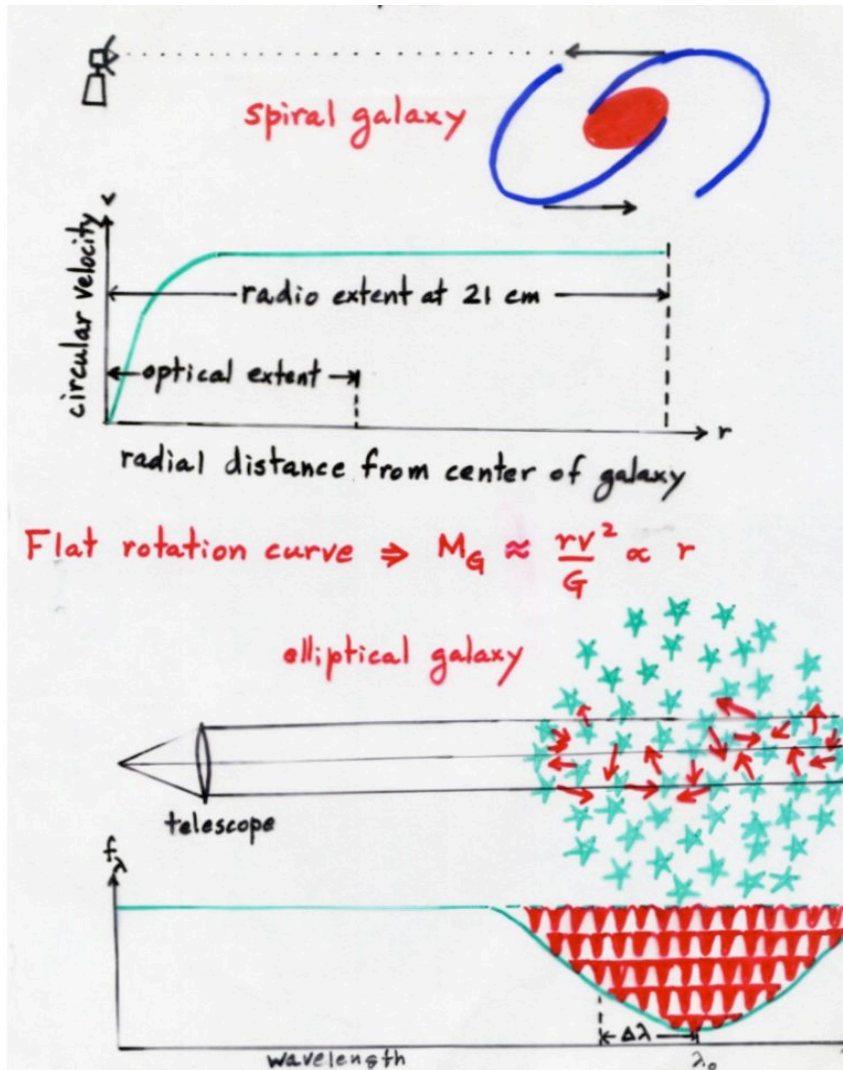 spiral galaxy
v
circular velocity
radio extent at 21 cm
optical extent
r
radial distance from center of galaxy
Flat rotation curve ⇒ M_G ≈ rv²/G ∝ r
elliptical galaxy
telescope
f_λ
Δλ
wavelength
λ₀